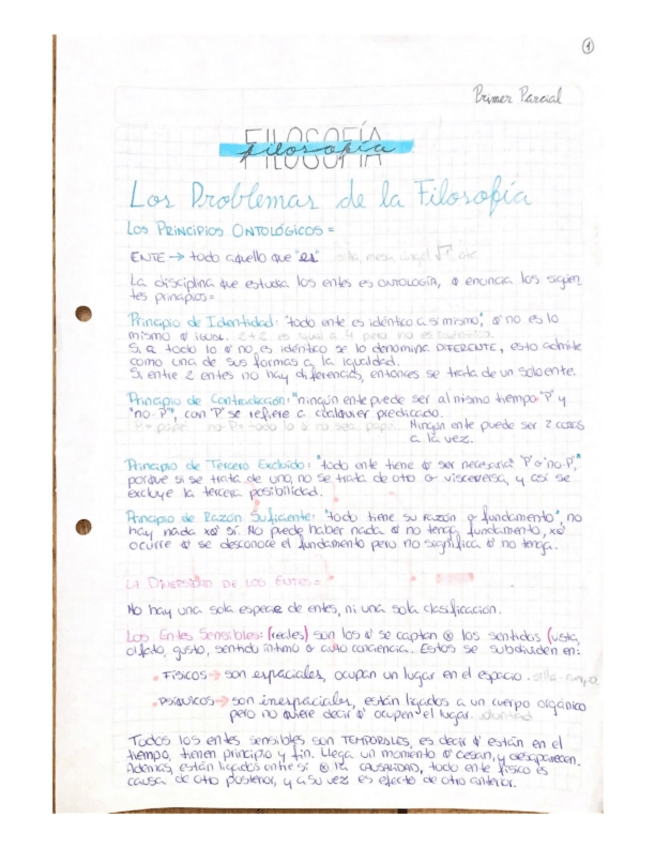 1
Primer Parcial
FILOSOFÍA
filosofía
Los Problemas de la Filosofía
LOS PRINCIPIOS ONTOLÓGICOS =
ENTE → todo aquello que "es" silla, mesa, ángel, √1, etc
La disciplina que estudia los entes es ONTOLOGÍA, q enuncia los siguien
tes principios=
Principio de Identidad: "todo ente es idéntico a sí mismo", q' no es lo
mismo q' igual. 2+2 es igual a 4 pero no es idéntico.
Si a todo lo q' no es idéntico se lo denomina DIFERENTE, esto admite
como una de sus formas a la igualdad.
Si entre 2 entes no hay diferencias, entonces se trata de un solo ente.
Principio de Contradicción: "ningún ente puede ser al mismo tiempo "P" y
"no-P"", con "P" se refiere a cualquier predicado.
P= papel no-P= todo lo q no sea papel. Ningún ente puede ser 2 cosas
a la vez.
Principio de Tercero Excluido: "todo ente tiene q' ser necesaria° "P" o "no-P","
porque si se trata de uno, no se trata de otro o visceversa, y así se
excluye la tercera posibilidad.
Principio de Razón Suficiente: "todo tiene su razón o fundamento", no
hay nada xq' sí. No puede haber nada q' no tenga fundamento, xq'
ocurre q' se desconoce el fundamento pero no significa q' no tenga.
LA DIVERSIDAD DE LOS ENTES =
No hay una sola especie de entes, ni una sola clasificación.
Los Entes Sensibles: (reales) son los q' se captan x los sentidos (vista,
olfato, gusto, sentido íntimo o auto conciencia. Estos se subdividen en:
• FÍSICOS → son espaciales, ocupan un lugar en el espacio. silla-campo
• PSÍQUICOS → son inespaciales, están ligados a un cuerpo orgánico
pero no quiere decir q' ocupen el lugar. voluntad
Todos los entes sensibles son TEMPORALES, es decir q' están en el
tiempo, tienen principio y fin. Llega un momento q' cesan, y desaparecen.
Además, están ligados entre sí x la CAUSALIDAD, todo ente físico es
causa de otro posterior, y a su vez es efecto de otro anterior.